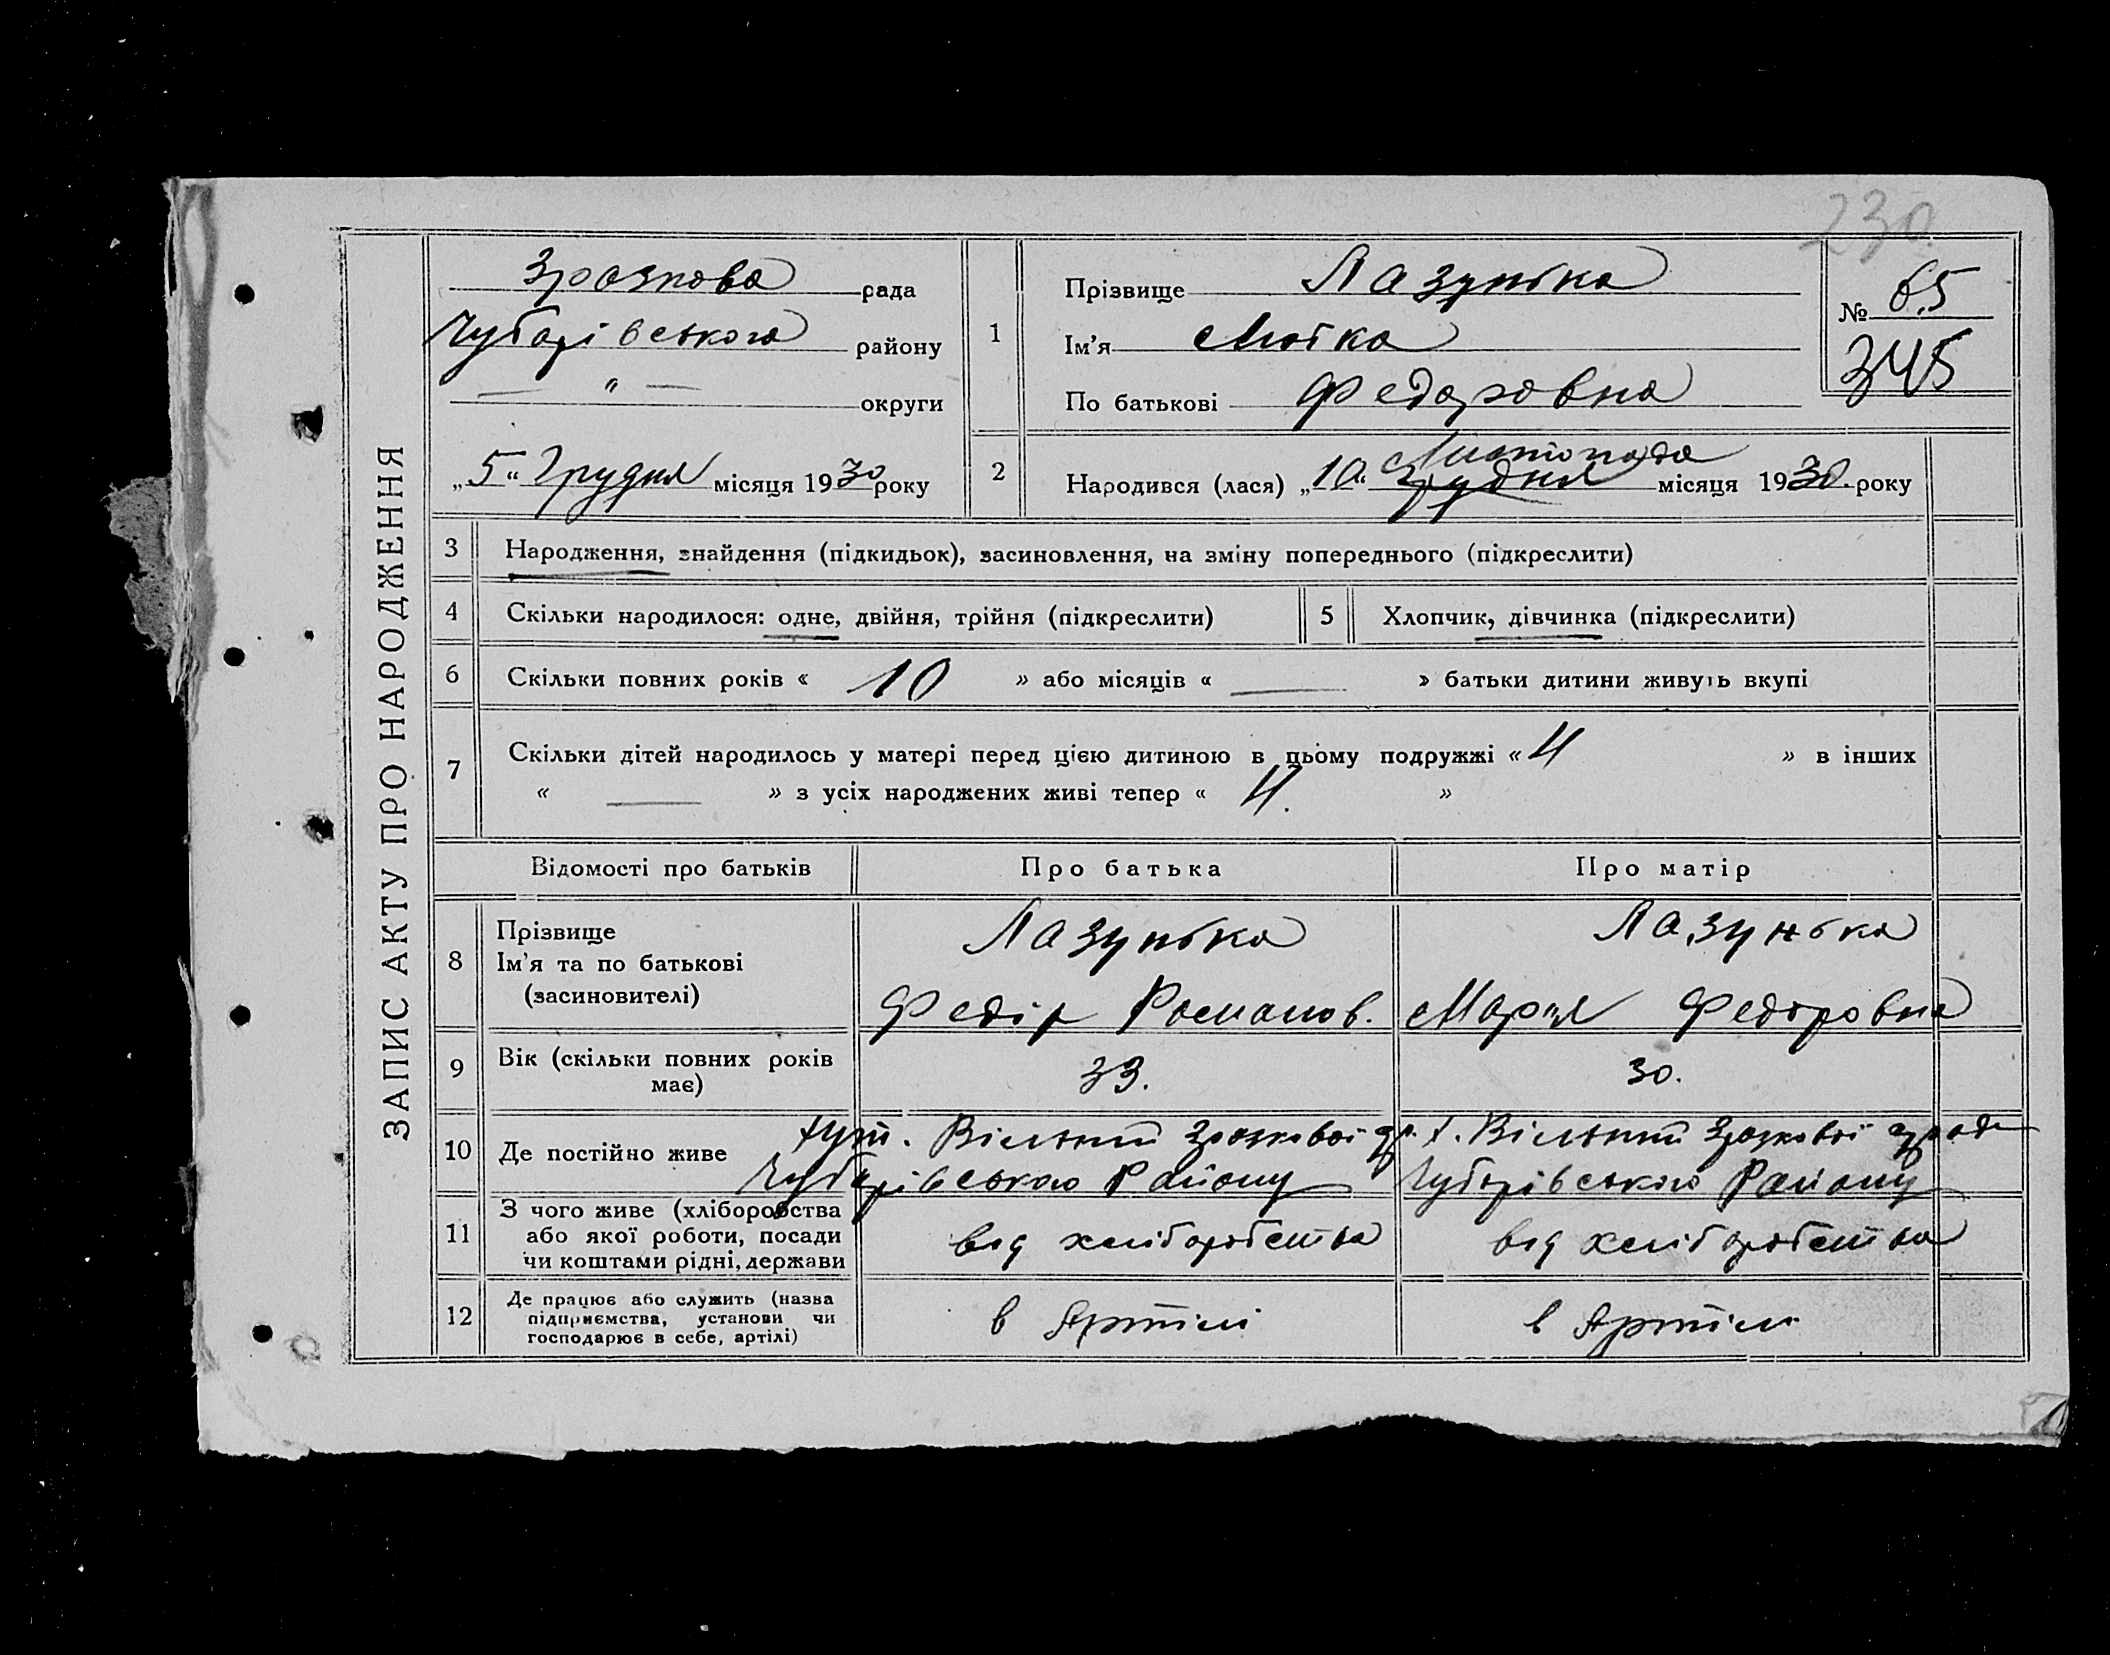 230.
ЗАПИС АКТУ ПРО НАРОДЖЕННЯ
Зразкова рада
Чубарівського району
— " — округи
„5“ Грудня місяця 1930 року
1
Прізвище Лазунька
Ім'я Любка
По батькові Федоровна
№ 65
345
2
Листопада
Народився (лася) „10“ Грудня місяця 1930. року
3 Народження, знайдення (підкидьок), засиновлення, на зміну попереднього (підкреслити)
4 Скільки народилося: одне, двійня, трійня (підкреслити) 5 Хлопчик, дівчинка (підкреслити)
6 Скільки повних років « 10 » або місяців « — » батьки дитини живуть вкупі
7 Скільки дітей народилось у матері перед цією дитиною в цьому подружжі « 4 » в інших
« — » з усіх народжених живі тепер « 4. »
Відомості про батьків Про батька Про матір
8 Прізвище
Ім'я та по батькові
(засиновителі)
Лазунька
Федір Романов.
Лазунька
Марія Федоровна
9 Вік (скільки повних років
має)
33.
30.
10 Де постійно живе
хут. Вільний Зразкової
Чубарівського Району
х. Вільний Зразкової с/ради
Чубарівського Району
11 З чого живе (хліборобства
або якої роботи, посади
чи коштами рідні, держави
від хліборобства
від хліборобства
12 Де працює або служить (назва
підприємства, установи чи
господарює в себе, артілі)
в Артілі
в Артілі